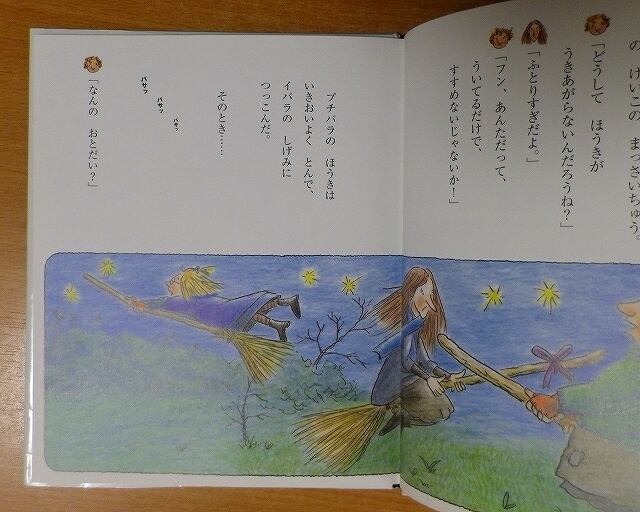 の けいこの まっさいちゅう。
「どうして ほうきが
うきあがらないんだろうね？」
「ふとりすぎだよ。」
「フン、あんただって、
ういてるだけで、
すすめないじゃないか！」
プチバラの ほうきは
いきおいよく とんで、
イバラの しげみに
つっこんだ。
そのとき……
バサッ
バサッ
バサッ
「なんの おとだい？」